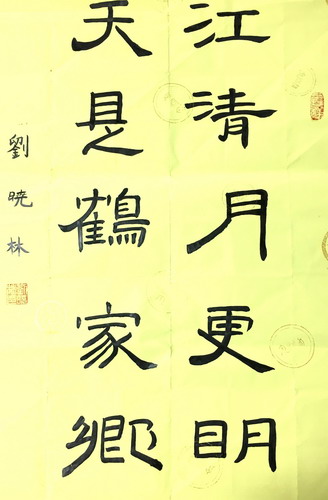 江清月更明
天是鶴家鄉
劉暁林